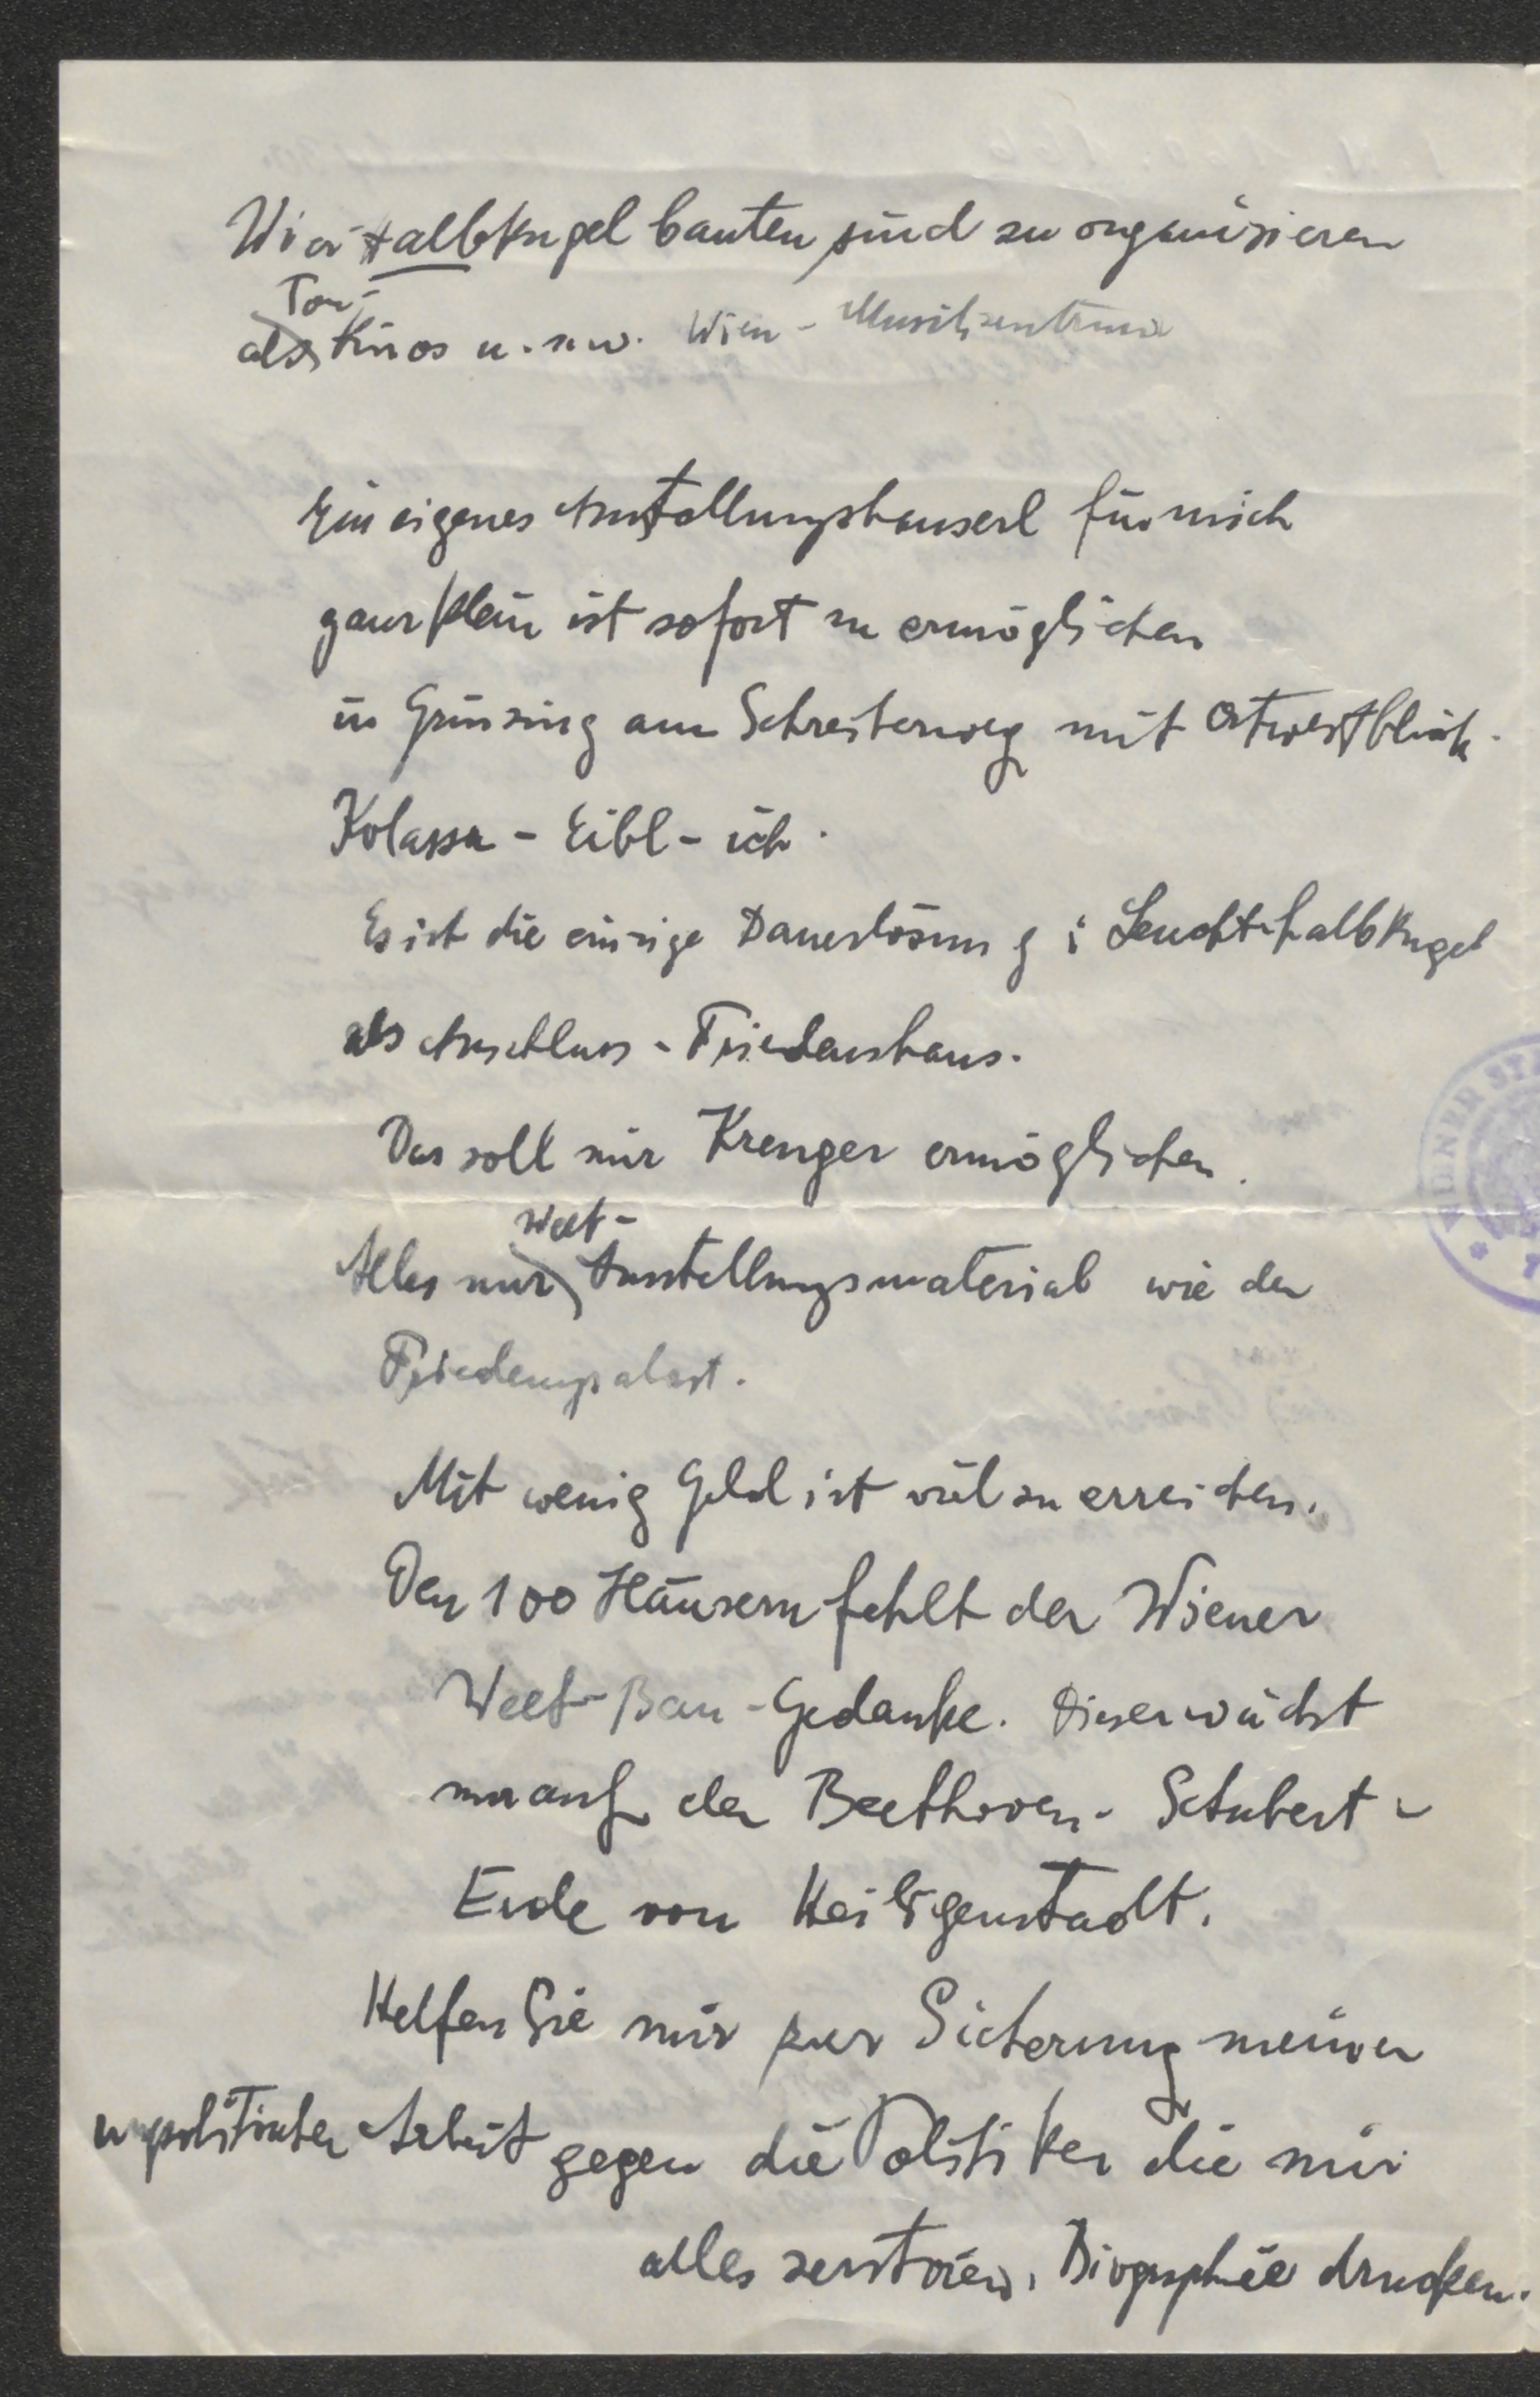 Vier Halbkugelbauten sind zu organisieren
als Ton-Kinos u.s.w. Wien - Musikzentrum
Ein eigenes Ausstellungshauserl für mich
ganz klein ist sofort zu ermöglichen
in Grinzing am Schreiberweg mit Ostwestblick.
Kolassa - Eibl - ich.
Es ist die einzige Dauerlösung: Leucht-halbkugel
als Anschluss - Friedenshaus.
Das soll mir Krenger ermöglichen.
Alles nur Welt- Ausstellungsmaterial wie der
Friedenspalast.
Mit wenig Geld ist viel zu erreichen.
Den 100 Häusern fehlt der Wiener
Welt-Bau-Gedanke. Dieser wächst
nur auf der Beethoven- Schubert-
Erde von Heiligenstadt.
Helfen Sie mir zur Sicherung meiner
unpolitischen Arbeit gegen die Politiker die mir
alles zerstören. Biographie drucken.